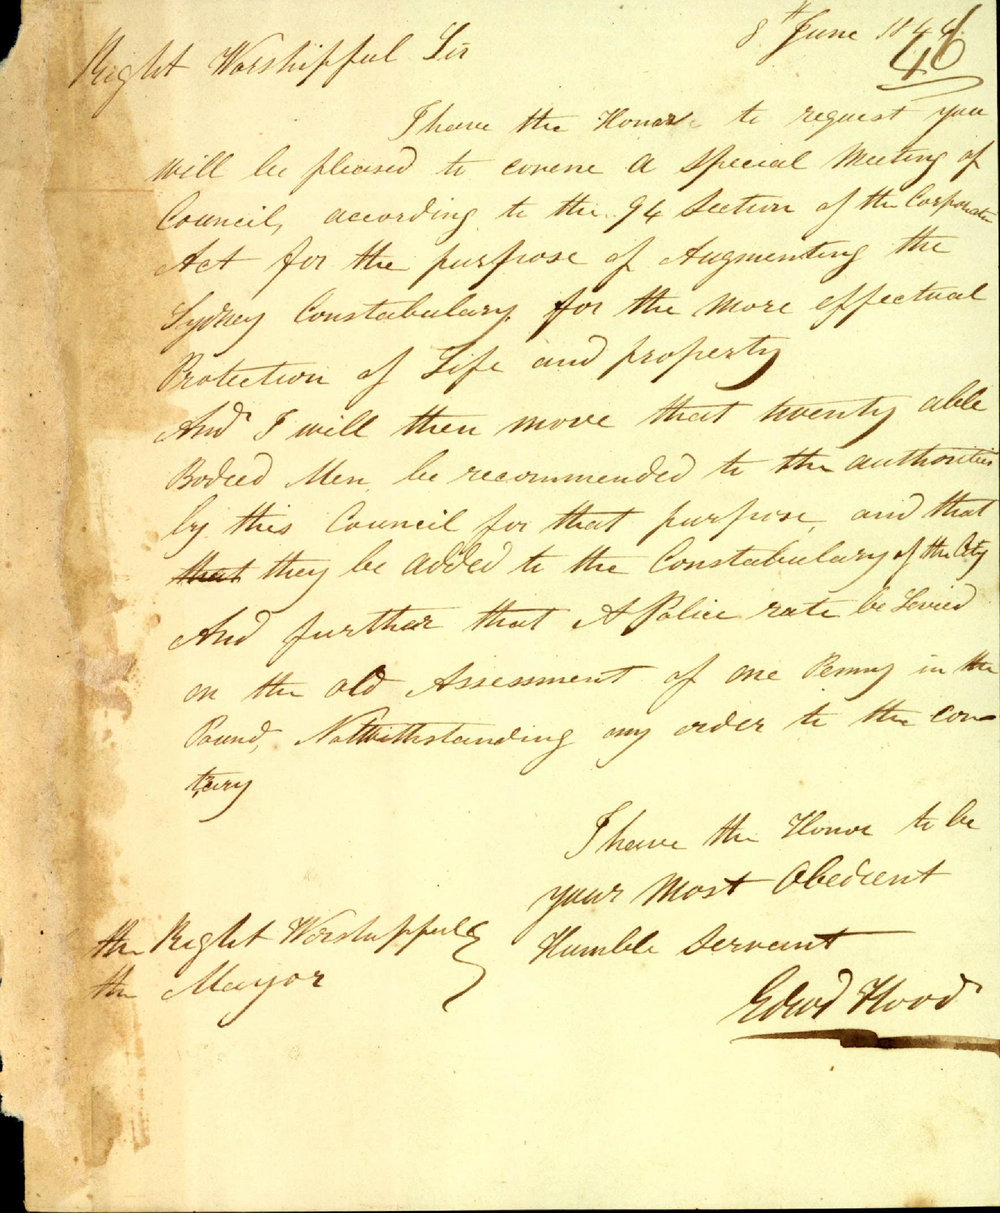 8th June 184
46
Right Worshipful Sir
I have the Honor to request you
will be pleased to convene A Special Meeting of
Council, according to the 94 Section of the Corporation
Act for the purpose of Augmenting the
Sydney Constabulary for the More effectual
Protection of Life and property
And I will then move that twenty able
Bodied Men be recommended to the authorities
by this Council for that purpose, and that
that they be Added to the Constabulary of the City
And further that A Police rate be Levied
on the old Assessment of one Penny in the
Pound, Notwithstanding any order to the con-
trary
I have the Honor to be
your Most Obedient
Humble Servant
Edwd Flood
the Right Worshipful
the Mayor